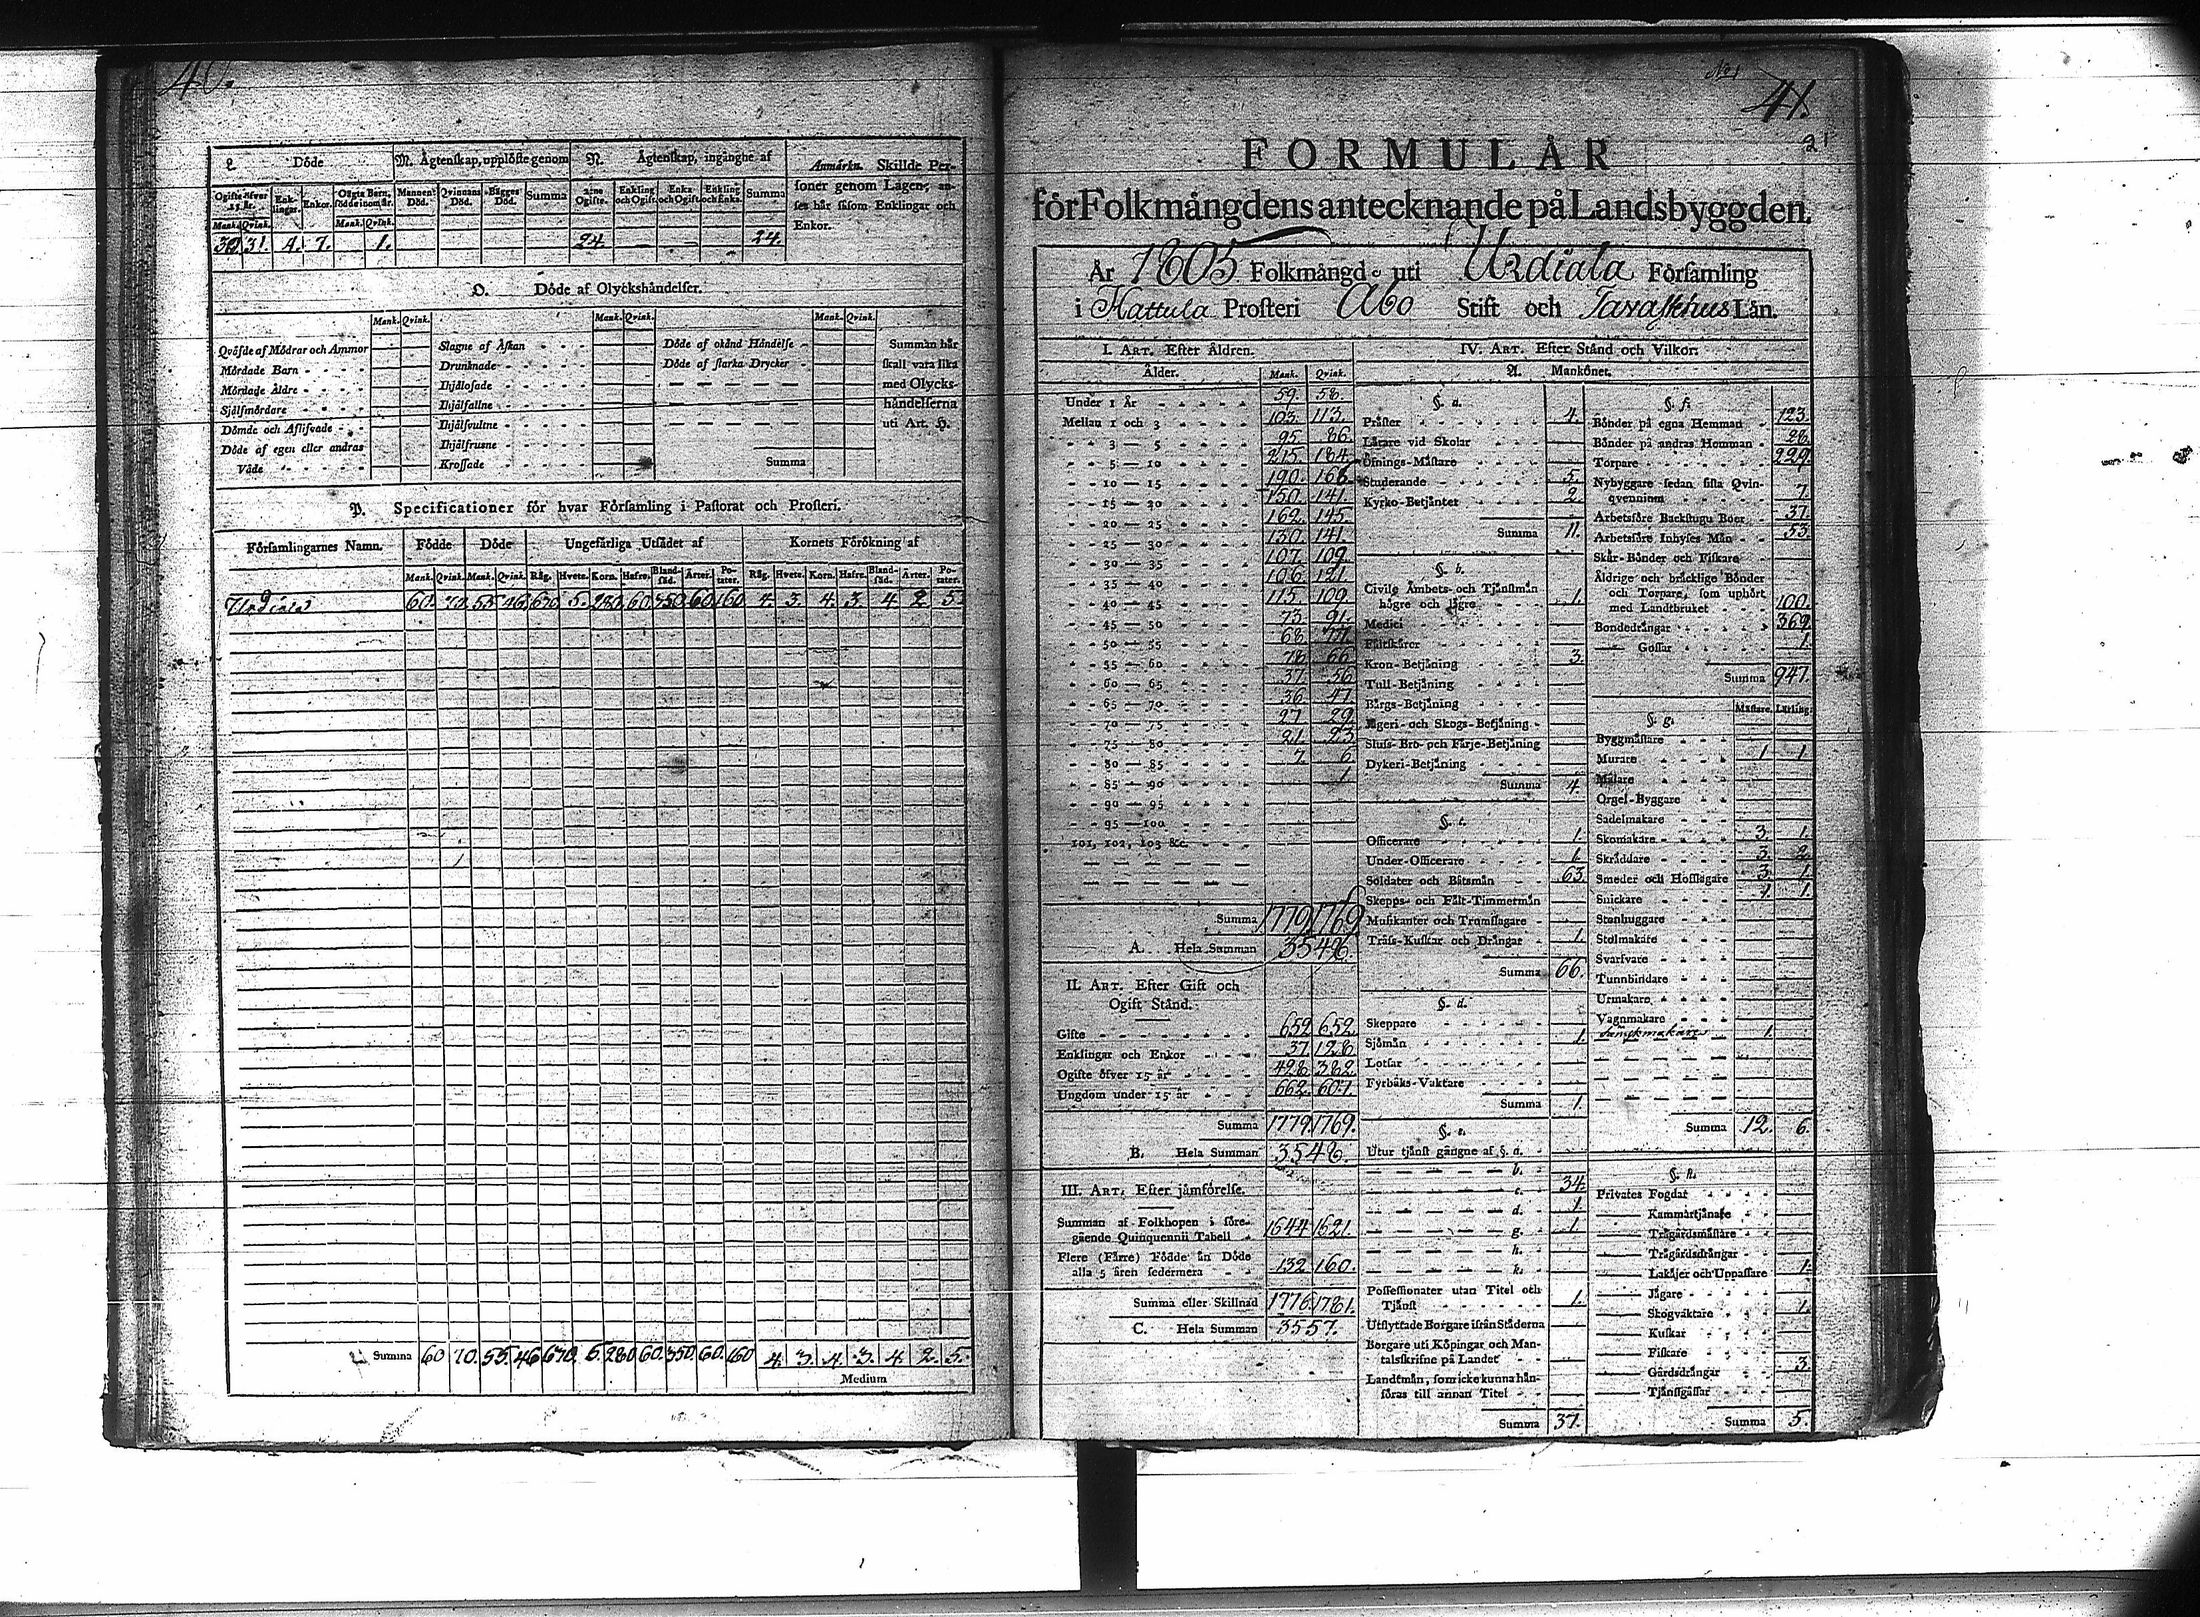 40.
L Döde
M. Ägtenskap, upplöste genom
N. Ägtenskap, ingånghe af
Anmärkn. Skillde Per-
soner genom Lagen, an-
ses här såsom Enklingar och
Enkor.
Ogifte öfver 15 år. Enk-lingar. Enkor. Oägta Barn, föddeinom år. Mannens Död. Qvinnans Död. Bägges Död. Summa Ogifte. Enkling och Ogift. Enka och Ogift. Enkling och Enka. Summa
Mank. Qvink. Mank. Qvink.
30 31. 4. 7. 1. 24 — — — 24.
O. Döde af Olyckshändelser.
Mank. Qvink. Mank. Qvink. Mank. Qvink.
Qväfde af Mödrar och Ammor
Mördade Barn
Mördade Äldre
Sjelfmördare
Dömde och Aflifvade
Döde af egen eller andras
Våde
Slagne af Åskan
Drunknade
Ihjälfrusne
Krossade
Döde af okänd Händelse
Döde af starka Drycker
Summa
Summan här
skall vara lika
med Olycks-
händelserna
uti Art. H.
P. Specificationer för hvar Församling i Pastorat och Prosteri.
Församlingarnes Namn. Födde Döde Ungefärliga Utsädet af Kornets Förökning af
Mank. Qvink. Mank. Qvink. Råg. Hvete. Korn. Hafre. Bland-säd. Ärter. Po-tater. Råg. Hvete. Korn. Hafre. Bland-säd. Ärter. Po-tater.
Urdiala 60. 70. 55. 46. 670. 5. 280. 60. 350. 60. 160 4. 3. 4. 3. 4. 2. 5.
Summa 60 70. 55. 46 670. 5. 280 60. 350. 60. 160 4. 3. 4. 3. 4. 2. 5.
Medium
No 1
41.
FORMULÄR
för Folkmängdens antecknande på Landsbyggden.
År 1805 Folkmängd uti Urdiala Församling
i Hattula Prosteri Åbo Stift och Tavasthus Län.
I. Art. Efter Åldren.
Ålder. Mank. Qvink.
Under 1 År 59. 58.
Mellan 1 och 3 103. 113.
3 — 5 95. 86.
5 — 10 215. 184.
10 — 15 190. 168.
15 — 20 150. 141.
20 — 25 162. 145.
25 — 30 130. 141.
30 — 35 107. 109.
35 — 40 106. 121.
40 — 45 115. 109.
45 — 50 73. 91.
50 — 55 68. 77.
55 — 60 78. 66
60 — 65 37. 56
65 — 70 36. 47.
70 — 75 27. 29.
75 — 80 21. 23
80 — 85 7. 6.
85 — 90 1.
90 — 95
95 — 100
101, 102, 103 &c.
Summa 1779. 1769
A. Hela Summan 3548.
II. Art. Efter Gift och
Ogift Stånd.
Gifte 652 652
Enklingar och Enkor 37. 128
Ogifte öfver 15 år 428 382.
Ungdom under 15 år 662. 607.
Summa 1779. 1769.
B. Hela Summan 3548.
III. Art. Efter jämförelse.
Summan af Folkhopen i före-
gående Quinquennii Tabell 1644 1621.
Flere (Färre) Födde än Döde
alla 5 åren sedermera 132 160.
Summa eller Skillnad 1776. 1781.
C. Hela Summan 3557.
IV. Art. Efter Stånd och Vilkor.
A. Mankönet.
§. a.
Präster 4.
Lärare vid Skolar
Öfnings-Mästare
Studerande 5.
Kyrko-Betjänter 2.
Summa 11.
§. b.
Civile Ämbets- och Tjänstmän
högre och lägre 1.
Medici
Fältskärer
Kron-Betjäning 3.
Tull-Betjäning
Bärgs-Betjäning
Jägeri- och Skogs-Betjäning
Sluss- Bro- och Färje-Betjäning
Dykeri-Betjäning
Summa 4.
§. c.
Officerare 1.
Under-Officerare 1.
Soldater och Båtsmän 63.
Skepps- och Fält-Timmermän
Musikanter och Tromslagare
Träss-Kuskar och Drängar 1.
Summa 66.
§. d.
Skeppare
Sjömän 1.
Lotsar
Fyrbåks-Vaktare
Summa 1.
§. e.
Utur tjänst gångne af §. a.
b.
c. 34.
d. 1.
g. 1.
h.
k.
Possessionater utan Titel och
Tjänst 1.
Utflyttade Borgare ifrån Städerna
Borgare uti Köpingar och Man-
talsskrifne på Landet
Landtmän, som icke kunna hän-
föras till annan Titel
Summa 37.
§. f.
Bönder på egna Hemman 123.
Bönder på andras Hemman 28.
Torpare 229.
Nybyggare sedan sista Qvin-
qvennium 7.
Arbetsföre Backstugu Boer 37.
Arbetsföre Inhyses Män 53.
Skär-Bönder och Fiskare
Åldrige och bräcklige Bönder
och Torpare, som uphört
med Landtbruket 100.
Bondedrängar 369.
— Gossar 1.
Summa 947.
§. g. Mästare. Lärling.
Byggmästare
Murare 1 1
Målare
Orgel-Byggare
Sadelmakare
Skomakare 3. 1.
Skräddare 3. 2.
Smeder och Hofslagare 3. 1.
Snickare 1. 1.
Stenhuggare
Stolmakare
Svarfvare
Tunnbindare
Urmakare
Vagnmakare
1.
Summa 12. 6.
§. h.
Privates Fogdar
— Kammartjänare
— Trägårdsmästare
— Trägårdsdrängar
— Lakäjer och Uppassare 1.
— Jägare
— Skogvaktare 1.
— Kuskar
— Fiskare
— Gårdsdrängar 3.
— Tjänstgossar
Summa 5.